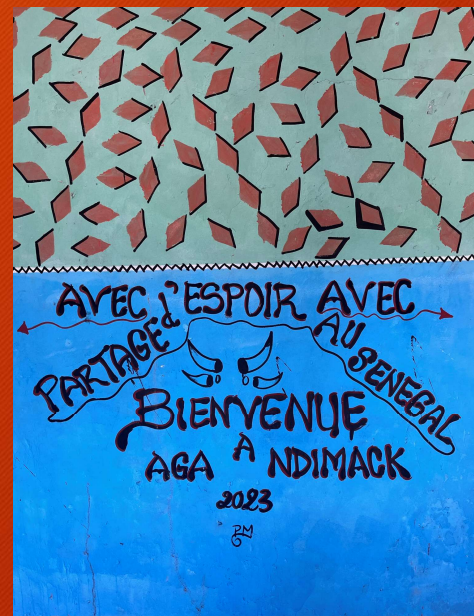 AVEC d'ESPOIR AVEC
PARTAGE AU SENEGAL
BIENVENUE
A
AGA NDIMACK
2023
PM